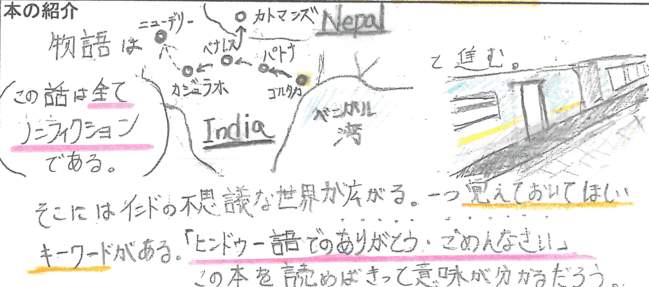 本の紹介
物語は
ニューデリー
カトマンズ
Nepal
ベナレス
パトナ
カジュラホ
India
ベンガル
湾
と進む。
(この話は全て
ノンフィクション
である。)
そこにはインドの不思議な世界が広がる。一つ覚えておいてほしい
キーワードがある。「ヒンドゥー語でのありがとう・ごめんなさい」
この本を読めばきっと意味が分かるだろう。